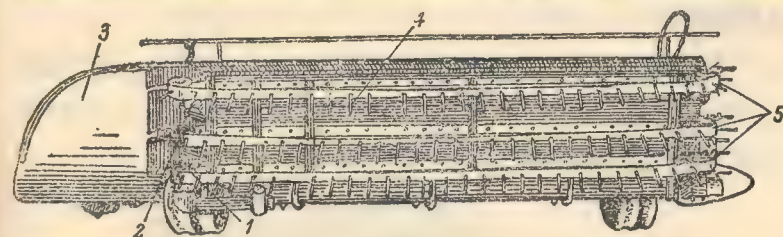 3
4
5
2
1